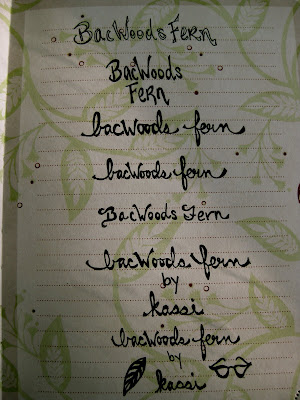 BacWoods Fern
BacWoods
Fern
bacwoods fern
bacwoods fern
BacWoods Fern
bacwoods fern
by
kassi
bacwoods fern
by
kassi